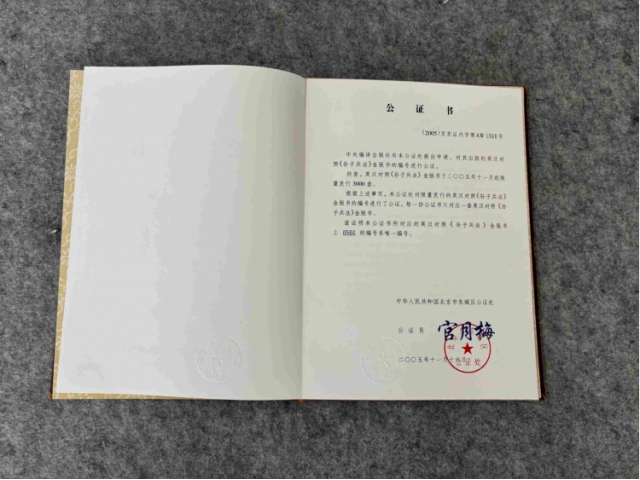 公 证 书
(2005)京东证内字第AW 1566号
中央编译出版社与本公证处联合申请，对其出版的英汉对
照《孙子兵法》金版书的编号进行公证。
经查，英汉对照《孙子兵法》金版书于二〇〇五年十一月起限
量发行3000套。
根据上述事实，本公证处对限量发行的英汉对照《孙子兵法》
金版书的编号进行了公证，每一份公证书只对应一套英汉对照《孙
子兵法》金版书。
兹证明本公证书所对应的英汉对照《孙子兵法》金版书
上 0566 的编号系唯一编号。
中华人民共和国北京市东城区公证处
公 证 员 宫月梅
二〇〇五年十一月十九日
公证处